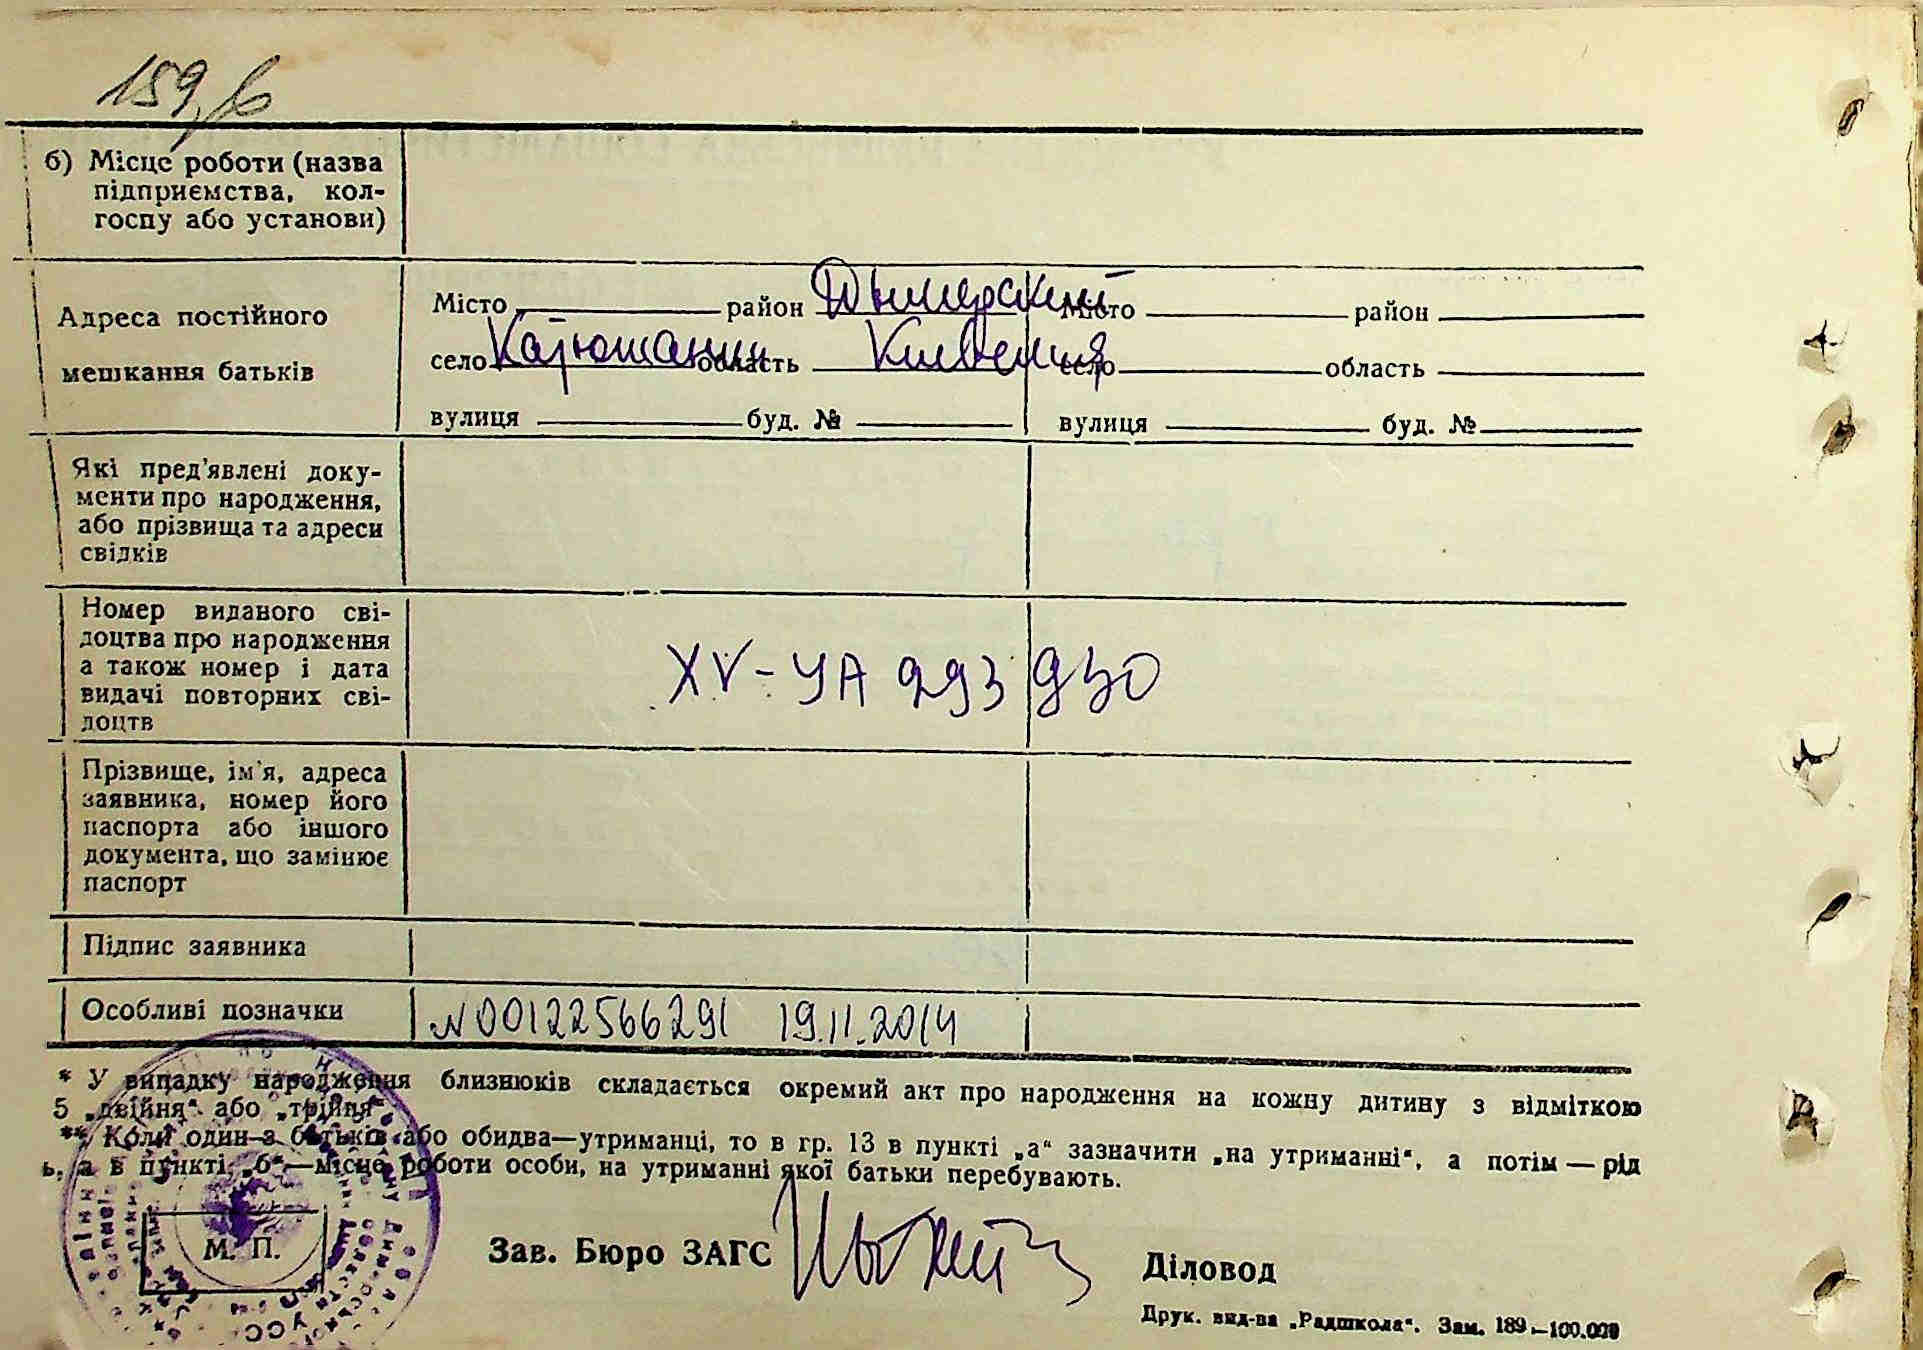 159, б
б) Місце роботи (назва
підприємства, кол-
госпу або установи)
Адреса постійного
мешкання батьків
Місто район Дымерский Місто район
село Катюжанки область Киевская село область
вулиця буд. № вулиця буд. №
Які пред'явлені доку-
менти про народження,
або прізвища та адреси
свідків
Номер виданого сві-
доцтва про народження
а також номер і дата
видачі повторних сві-
доцтв
XV-УА 293930
Прізвище, ім'я, адреса
заявника, номер його
паспорта або іншого
документа, що замінює
паспорт
Підпис заявника
Особливі позначки
N 00122566291 19.11.2014
* У випадку народження близнюків складається окремий акт про народження на кожну дитину з відміткою
5 „двійня“ або „трійня“
** Коли один з батьків або обидва—утриманці, то в гр. 13 в пункті „а“ зазначити „на утриманні“, а потім — рід
ь, а в пункті „б“—місце роботи особи, на утриманні якої батьки перебувають.
М. П.
Зав. Бюро ЗАГС
Діловод
Друк. вид-ва „Радшкола“. Зам. 189.—100.000